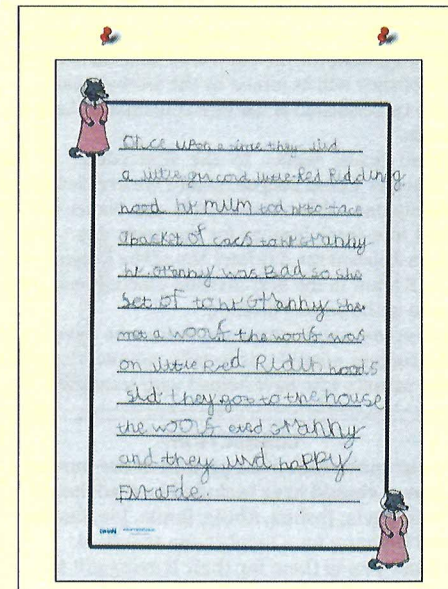 Once upon a time they livd
a little girl cord little Red Ridding
hood hr mum tod hr to tace
a packet of cacs to hr granny
hr granny was Bad so she
set of to hr Granny she
met a woolf the woolf was
on little Red Ridin hoods
sid they got to the house
the woolf eted granny
and they livd happy